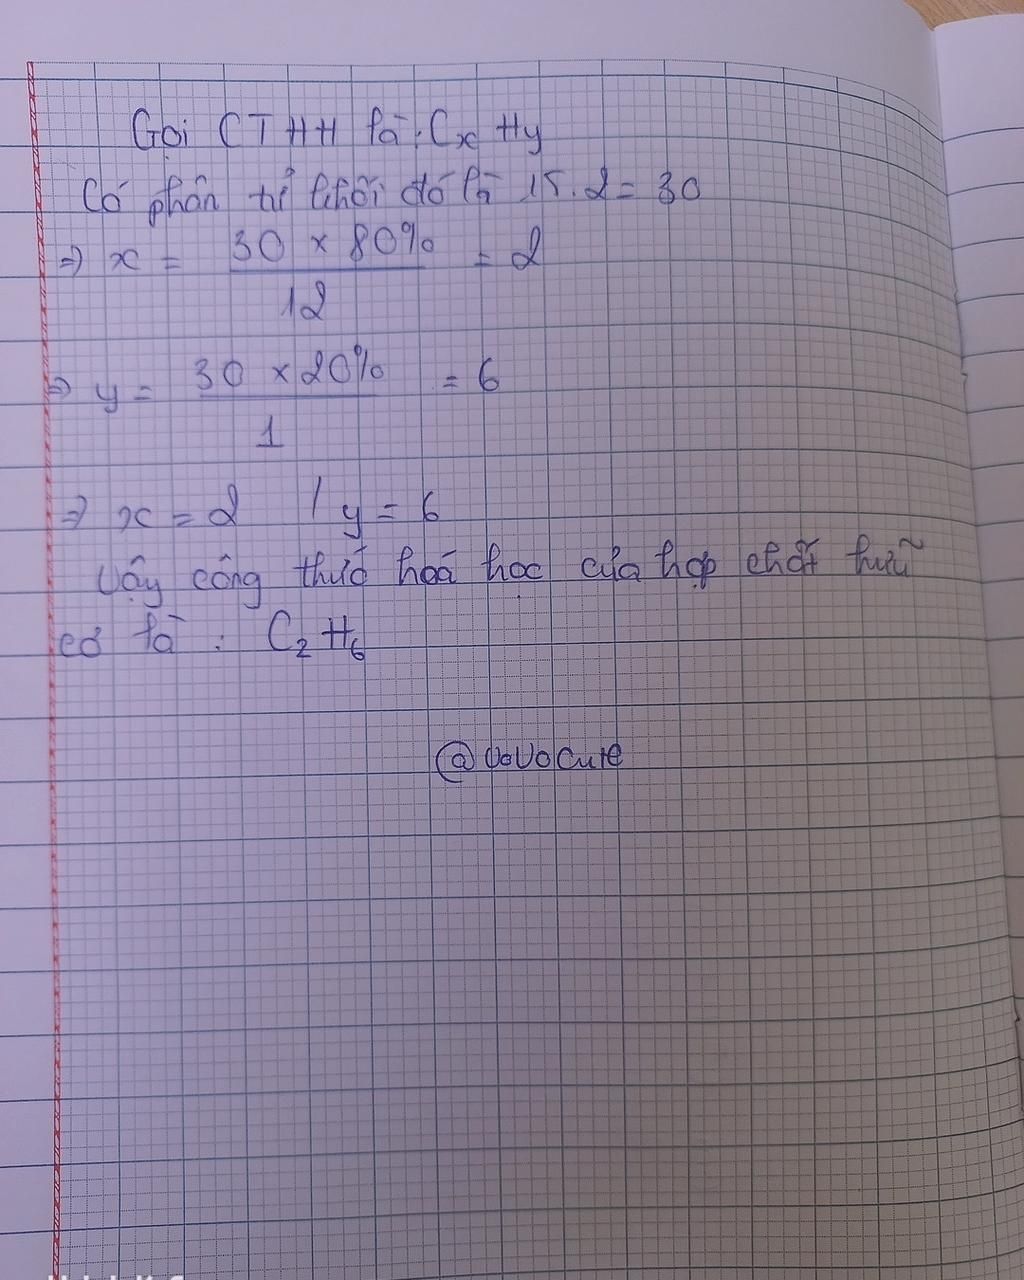 Gọi CTHH là: CxHy
Có phân tử khối đó là 15.2 = 30
⇒ x = 30 x 80% / 12 = 2
⇒ y = 30 x 20% / 1 = 6
⇒ x = 2 / y = 6
Vậy công thức hoá học của hợp chất hữu
cơ là : C₂H₆
@vovocute